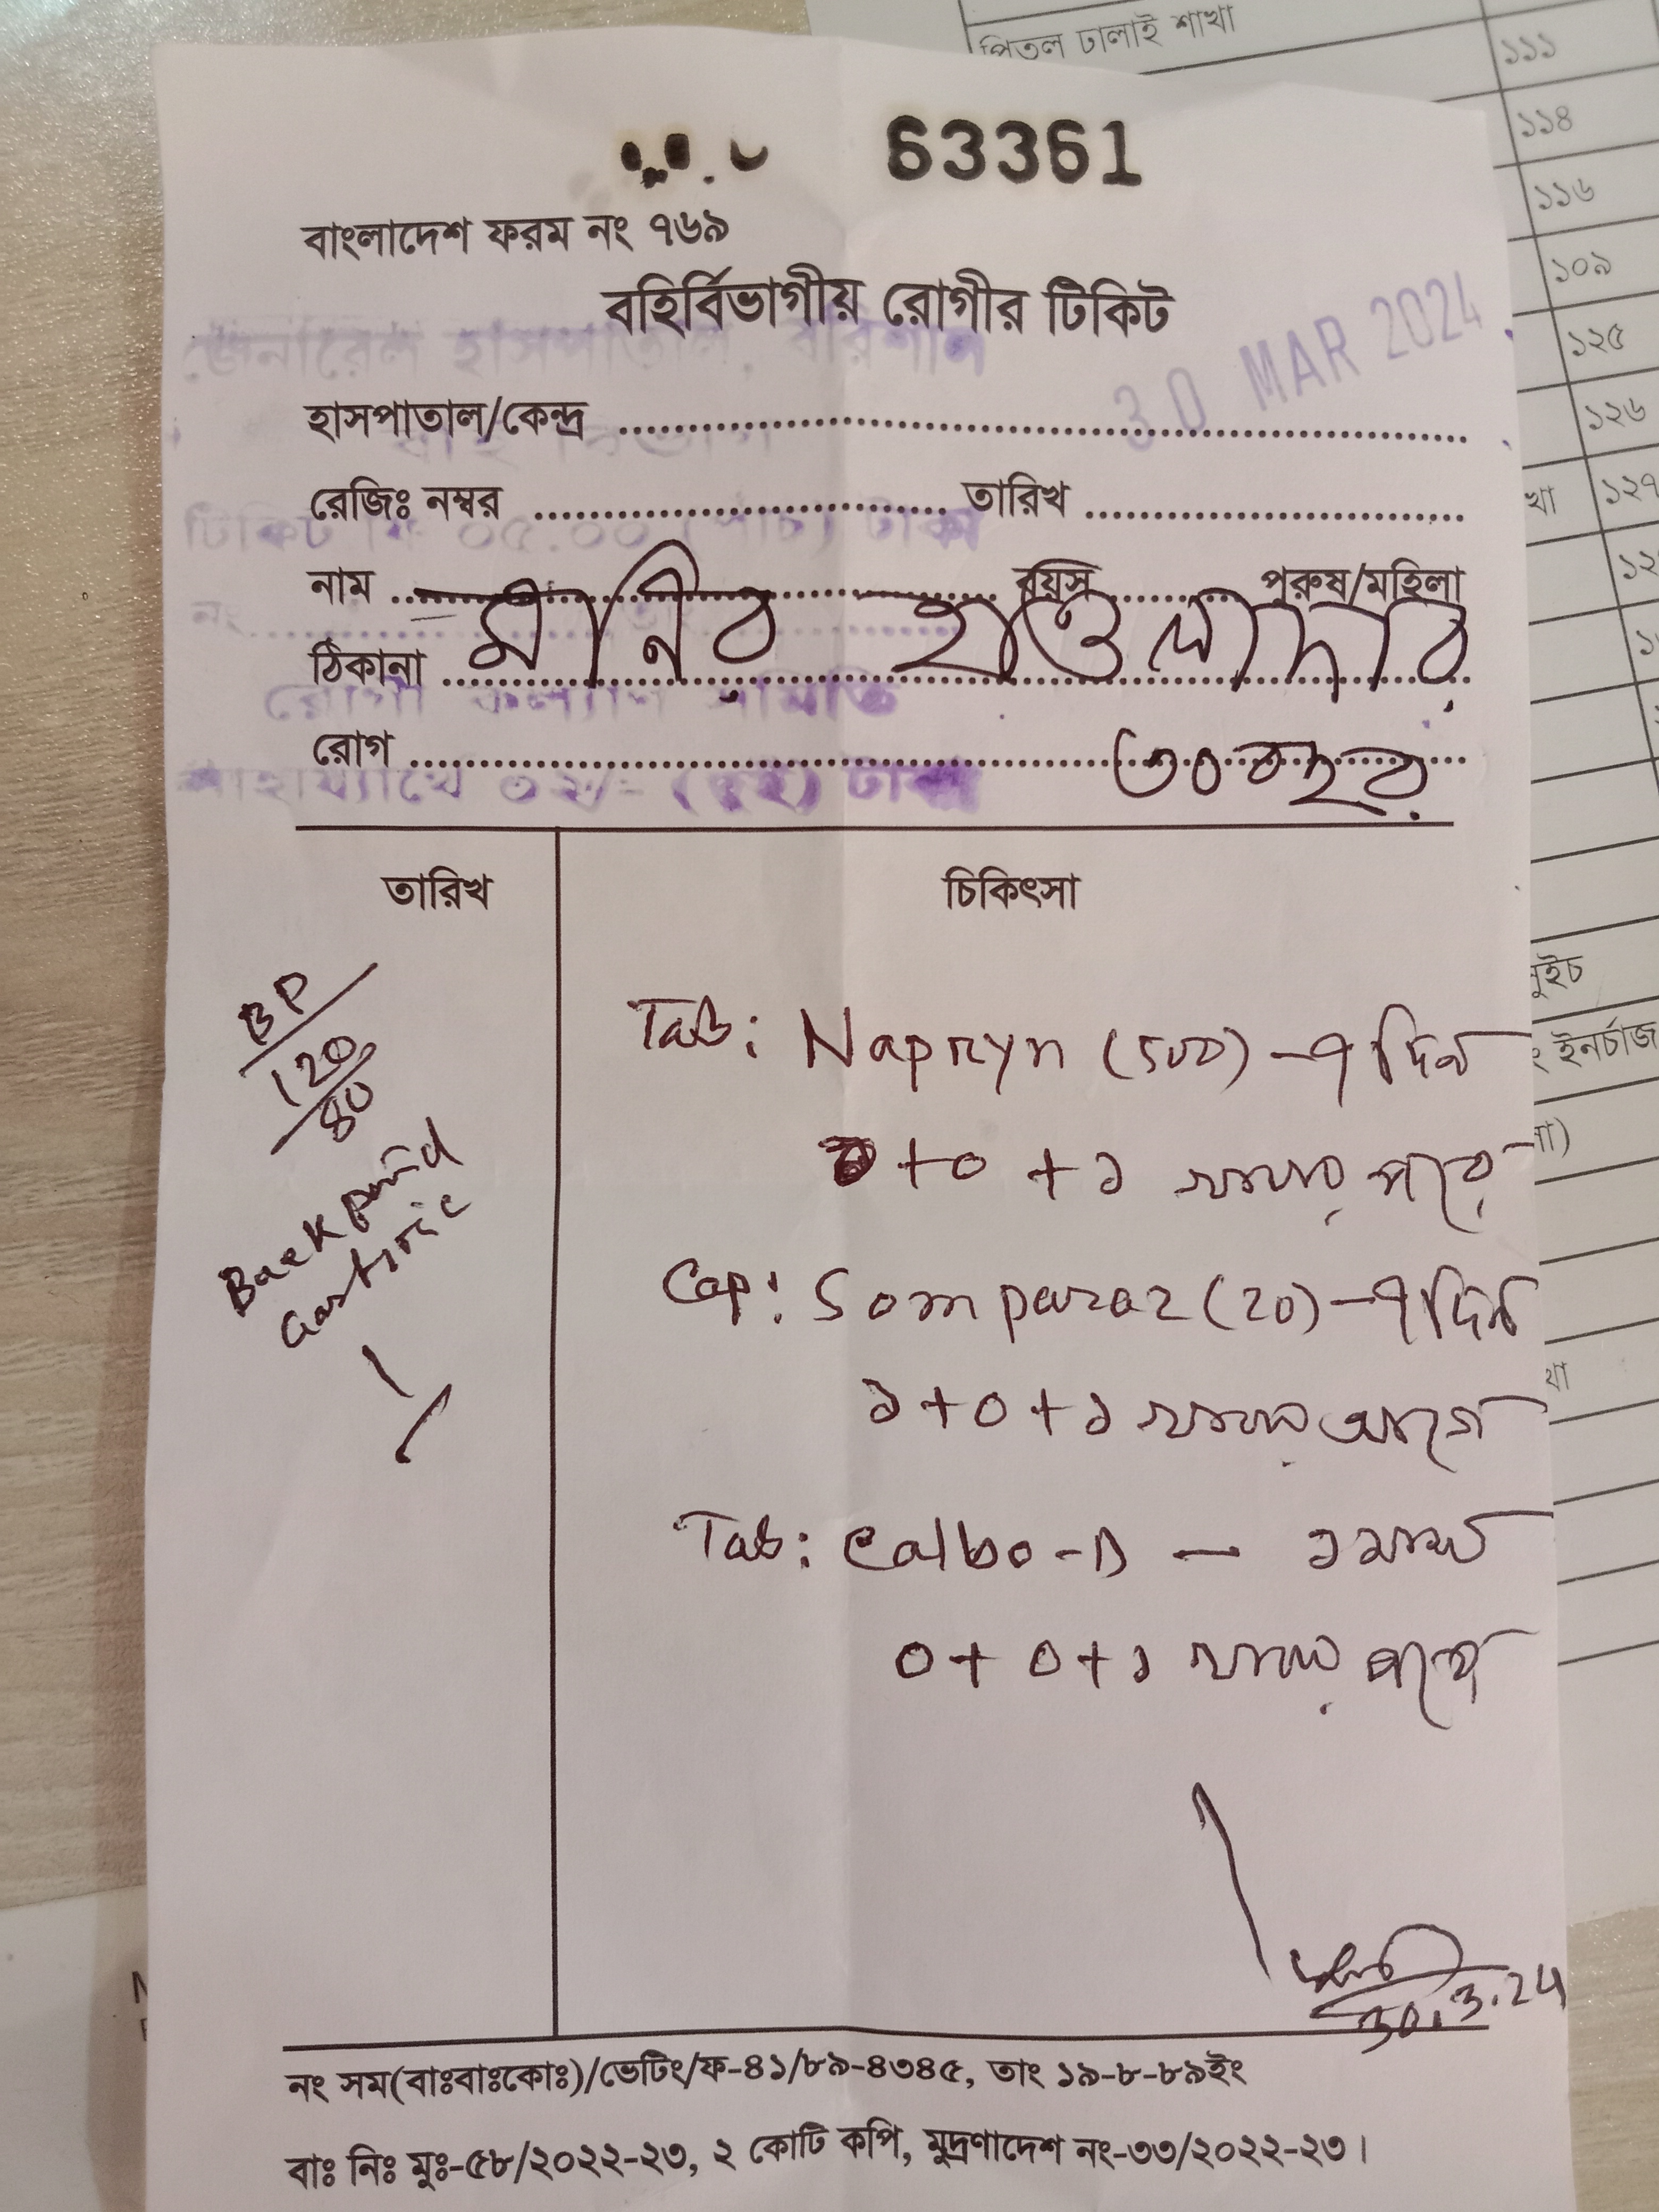 পিতল ঢালাই শাখা
১১১
১১৪
১১৬
১০৯
১২৫
১২৬
খা ১২৭
63361
বাংলাদেশ ফরম নং ৭৬৯
বহির্বিভাগীয় রোগীর টিকিট
জেনারেল হাসপাতাল, বরিশাল
30 MAR 2024
হাসপাতাল/কেন্দ্র
রেজিঃ নম্বর তারিখ
টিকিট ফি ০৫.০০ (পাঁচ) টাকা
নাম বয়স পুরুষ/মহিলা
নং
ঠিকানা হাওলাদার
রোগী কল্যাণ সমিতি
রোগ ৩০ বছর
সাহায্যার্থে ০২/= (দুই) টাকা
তারিখ চিকিৎসা
BP
120
80
Back pain
Gastric
Tab: Napryn (500) - ৭ দিন
0+0+১ খাবার পরে
Cap: Somparaz (20) - ৭ দিন
১+0+১ খাবার আগে
Tab: Calbo-D — ১ মাস
0+0+১ খাবার পরে
30.3.24
নং সম(বাঃবাঃকোঃ)/ভেটিং/ফ-৪১/৮৯-৪৩৪৫, তাং ১৯-৮-৮৯ইং
বাঃ নিঃ মুঃ-৫৮/২০২২-২৩, ২ কোটি কপি, মুদ্রণাদেশ নং-৩৩/২০২২-২৩।
ইনর্চাজ